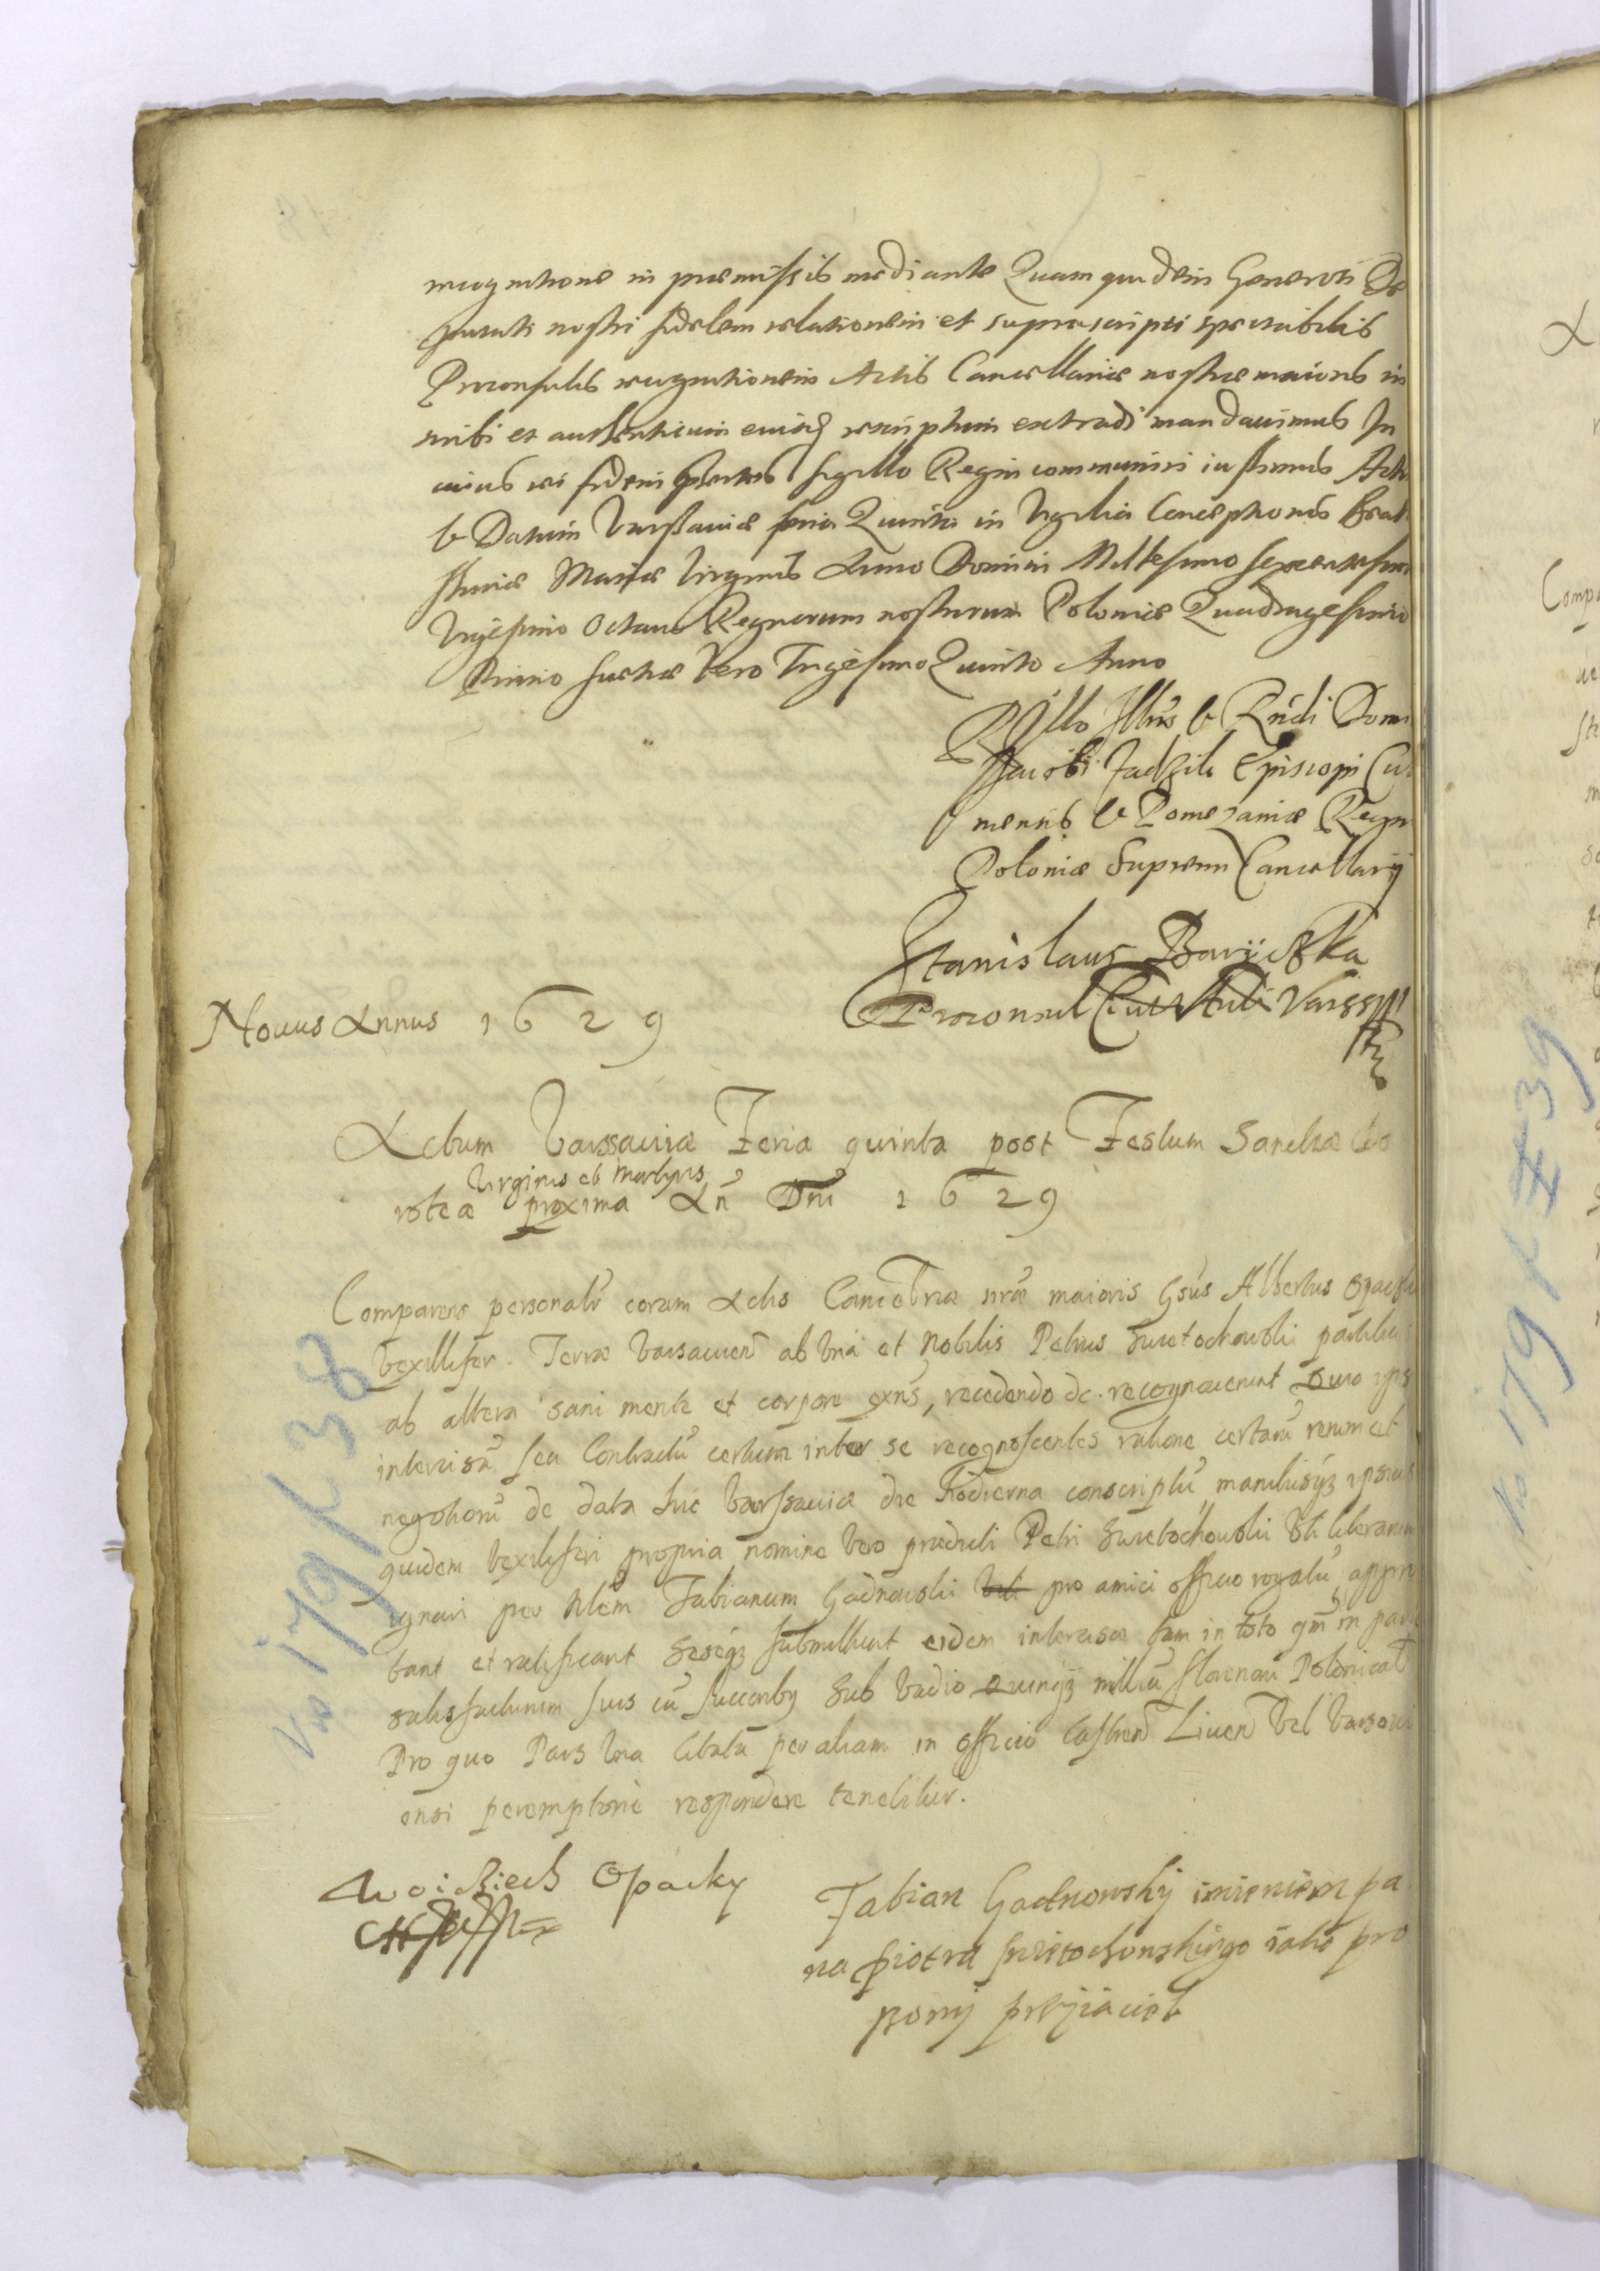 recognitione in præmissis mediante Quam quidem Generosi De
putati nostri fidelem relationem et suprascripti spectabilis
Proconsulis recognitionem Actis Cancellariæ nostræ maioris in
scribi et authenticum eiusq rescriptum extradi mandauimus In
cuius rei fidem sigillo Regni communiri iussimus Actu
& Datum Varssauiæ feria Quinta in Vigilia Conceptionis Beat
issimæ Mariæ Virginis Anno Domini Millesimo Sexcentesimo
Vigesimo Octauo Regnorum nostrorum Poloniæ Quadragesimo
Primo Suetiæ Vero Trigesimo Quinto Anno
Illris & Rndi Domi
Jacobi Zadzik Episcopi Cul
mensis & Pomezaniæ Regni
Poloniæ Supremi Cancellarij
Stanislaus Baryczka
Proconsul Varss
Nouus Annus 1629
Actum Varssauiæ Feria quinta post Festum Sanctæ Do
Virginis et Martyris
roteæ proxima An Dni 1629
Comparens personalr coram Actis Cancellriæ nræ maioris Gsus Albertus Opacki
Vexillifer Terræ Varsauien ab vna et Nobilis Petrus Swietochowski
ab altera sani mente et corpore exns, recedendo de recognouerunt
intercisa seu Contractu certum inter se recognoscentes ratione certaru rerum et
negotioru de data hic Varssauiæ die hodierna conscriptu manibusq ipsius
quidem Vexilliferi propria nomine vero prædicti Petri Swietochowski
per Nlem Fabianum Gadnowski pro amici officio rogatu appro
bant et ratificant seseq submittunt eidem intercisæ tam in toto qm in parte
satisfacturum suis cu succorbq sub vadio Quinq milliu florenoru Polonical
Pro quo Pars vna citata per aliam in officio Castren Liuen vel Varsoui
ensi peremptoriè respondere tenebitur.
Woiciech Opacky
Fabian Gadnowsky imieniem pa
na Piotra Swietochowskiego iako pro
szony przyiaciel
No 179 k 38
No 179 k 39